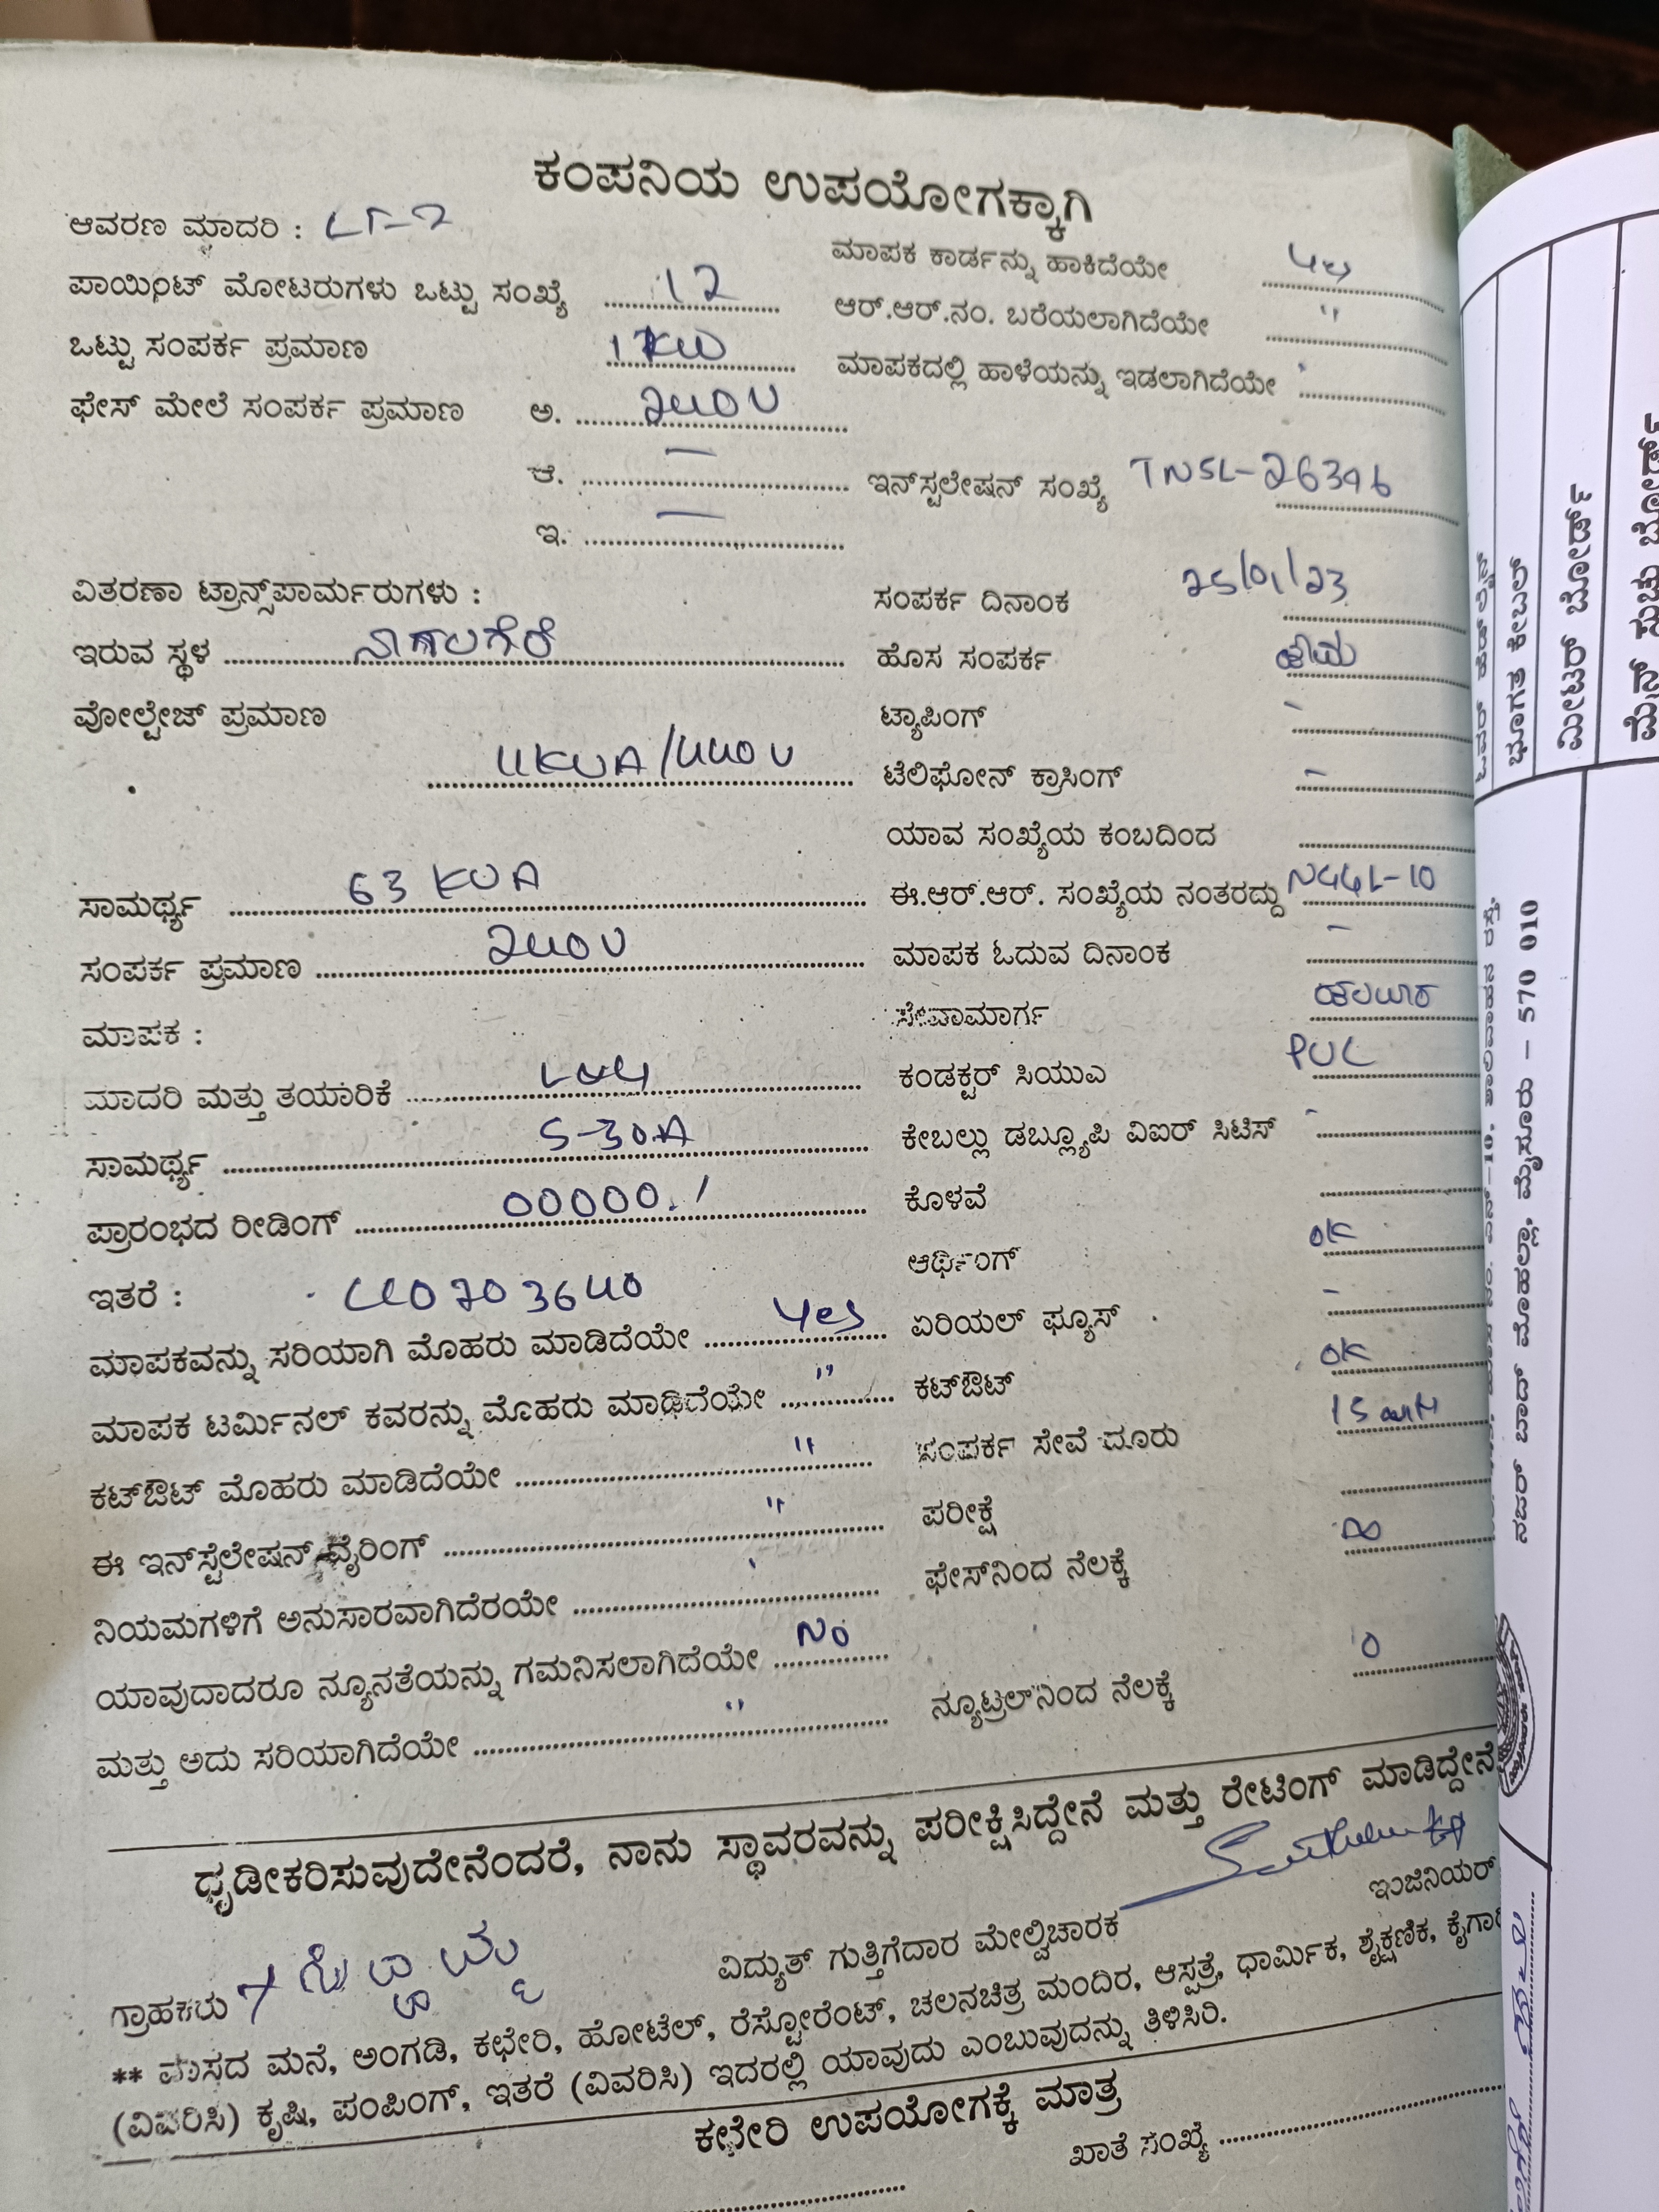 ಕಂಪನಿಯ ಉಪಯೋಗಕ್ಕಾಗಿ
ಆವರಣ ಮಾದರಿ : LT-7
ಪಾಯಿಂಟ್ ಮೋಟರುಗಳು ಒಟ್ಟು ಸಂಖ್ಯೆ 12
ಒಟ್ಟು ಸಂಪರ್ಕ ಪ್ರಮಾಣ 1 KW
ಫೇಸ್ ಮೇಲೆ ಸಂಪರ್ಕ ಪ್ರಮಾಣ ಅ. 240V
ಆ. —
ಇ. —
ವಿತರಣಾ ಟ್ರಾನ್ಸ್‌ಪಾರ್ಮರುಗಳು :
ಇರುವ ಸ್ಥಳ
ವೋಲ್ಟೇಜ್ ಪ್ರಮಾಣ
11KVA/440V
ಸಾಮರ್ಥ್ಯ 63 KVA
ಸಂಪರ್ಕ ಪ್ರಮಾಣ 240V
ಮಾಪಕ :
ಮಾದರಿ ಮತ್ತು ತಯಾರಿಕೆ
ಸಾಮರ್ಥ್ಯ 5-30A
ಪ್ರಾರಂಭದ ರೀಡಿಂಗ್ 00000.1
ಇತರೆ :
ಮಾಪಕವನ್ನು ಸರಿಯಾಗಿ ಮೊಹರು ಮಾಡಿದೆಯೇ Yes
ಮಾಪಕ ಟರ್ಮಿನಲ್ ಕವರನ್ನು ಮೊಹರು ಮಾಡಿದೆಯೇ "
ಕಟ್‌ಔಟ್ ಮೊಹರು ಮಾಡಿದೆಯೇ "
ಈ ಇನ್‌ಸ್ಟೆಲೇಷನ್ ವೈರಿಂಗ್ "
ನಿಯಮಗಳಿಗೆ ಅನುಸಾರವಾಗಿದೆರಯೇ
ಯಾವುದಾದರೂ ನ್ಯೂನತೆಯನ್ನು ಗಮನಿಸಲಾಗಿದೆಯೇ No
ಮತ್ತು ಅದು ಸರಿಯಾಗಿದೆಯೇ "
ಮಾಪಕ ಕಾರ್ಡನ್ನು ಹಾಕಿದೆಯೇ Yes
ಆರ್.ಆರ್.ನಂ. ಬರೆಯಲಾಗಿದೆಯೇ "
ಮಾಪಕದಲ್ಲಿ ಹಾಳೆಯನ್ನು ಇಡಲಾಗಿದೆಯೇ
ಇನ್‌ಸ್ಟಲೇಷನ್ ಸಂಖ್ಯೆ TNSL-26396
ಸಂಪರ್ಕ ದಿನಾಂಕ 25/01/23
ಹೊಸ ಸಂಪರ್ಕ
ಟ್ಯಾಪಿಂಗ್ -
ಟೆಲಿಫೋನ್ ಕ್ರಾಸಿಂಗ್ -
ಯಾವ ಸಂಖ್ಯೆಯ ಕಂಬದಿಂದ
ಈ.ಆರ್.ಆರ್. ಸಂಖ್ಯೆಯ ನಂತರದ್ದು
ಮಾಪಕ ಓದುವ ದಿನಾಂಕ -
ಸೇವಾಮಾರ್ಗ
ಕಂಡಕ್ಟರ್ ಸಿಯುಎ PVC
ಕೇಬಲ್ಲು ಡಬ್ಲ್ಯೂಪಿ ವಿಐರ್ ಸಿಟಿಸ್ -
ಕೊಳವೆ
ಆರ್ಥಿಂಗ್ OK
ಏರಿಯಲ್ ಫ್ಯೂಸ್ -
ಕಟ್‌ಔಟ್ OK
ಸಂಪರ್ಕ ಸೇವೆ ದೂರು
ಪರೀಕ್ಷೆ
ಫೇಸ್‌ನಿಂದ ನೆಲಕ್ಕೆ ∞
ನ್ಯೂಟ್ರಲ್‌ನಿಂದ ನೆಲಕ್ಕೆ 0
ಧೃಡೀಕರಿಸುವುದೇನೆಂದರೆ, ನಾನು ಸ್ಥಾವರವನ್ನು ಪರೀಕ್ಷಿಸಿದ್ದೇನೆ ಮತ್ತು ರೇಟಿಂಗ್ ಮಾಡಿದ್ದೇನೆ
ಇಂಜಿನಿಯರ್
ಗ್ರಾಹಕರು
ವಿದ್ಯುತ್ ಗುತ್ತಿಗೆದಾರ ಮೇಲ್ವಿಚಾರಕ
** ವಾಸದ ಮನೆ, ಅಂಗಡಿ, ಕಛೇರಿ, ಹೋಟೆಲ್, ರೆಸ್ಟೋರೆಂಟ್, ಚಲನಚಿತ್ರ ಮಂದಿರ, ಆಸ್ಪತ್ರೆ, ಧಾರ್ಮಿಕ, ಶೈಕ್ಷಣಿಕ,
(ವಿವರಿಸಿ) ಕೃಷಿ, ಪಂಪಿಂಗ್, ಇತರೆ (ವಿವರಿಸಿ) ಇದರಲ್ಲಿ ಯಾವುದು ಎಂಬುವುದನ್ನು ತಿಳಿಸಿರಿ.
ಕಛೇರಿ ಉಪಯೋಗಕ್ಕೆ ಮಾತ್ರ
ಖಾತೆ ಸಂಖ್ಯೆ
ಭೂಗತ ಕೇಬಲ್
ಮೀಟರ್ ಬೋರ್ಡ್
ನಜರ್ ಬಾದ್ ಮೊಹಲ್ಲಾ, ಮೈಸೂರು – 570 010